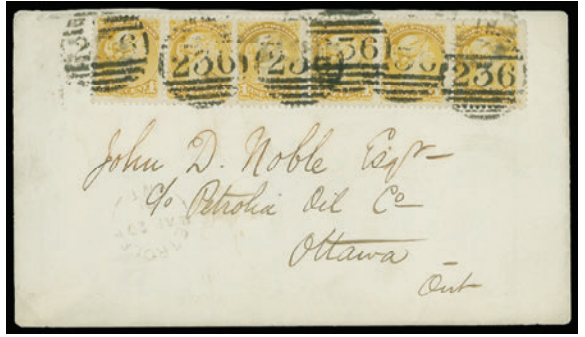 236 236 236 236 236 236
John D. Noble Esqr
c/o Petrolia Oil Co
Ottawa
Ont